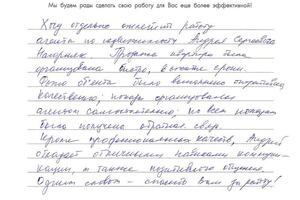 Мы будем рады сделать свою работу для Вас еще более эффективной!
Хочу отдельно отметить работу
агента по недвижимости Андрея Сергеевича
Продажа квартиры была
организована быстро, в сжатые сроки.
Фото объекта было выполнено оперативно
качественно; показы организовывались
агентом самостоятельно; по всем показам
была получена обратная связь.
Кроме профессиональных качеств, Андрей
обладает отличными навыками коммуни-
кации, а также позитивного общения.
Одним словом - спасибо Вам за работу!